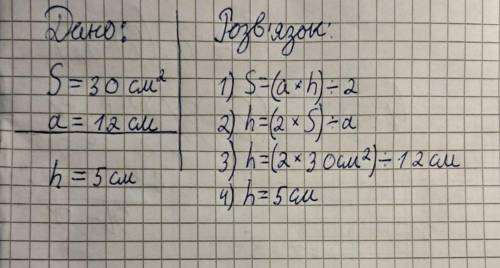 Дано:
S = 30 см²
a = 12 см
h = 5 см
Розв'язок:
1) S=(a×h)÷2
2) h=(2×S)÷a
3) h=(2×30см²)÷12см
4) h=5см